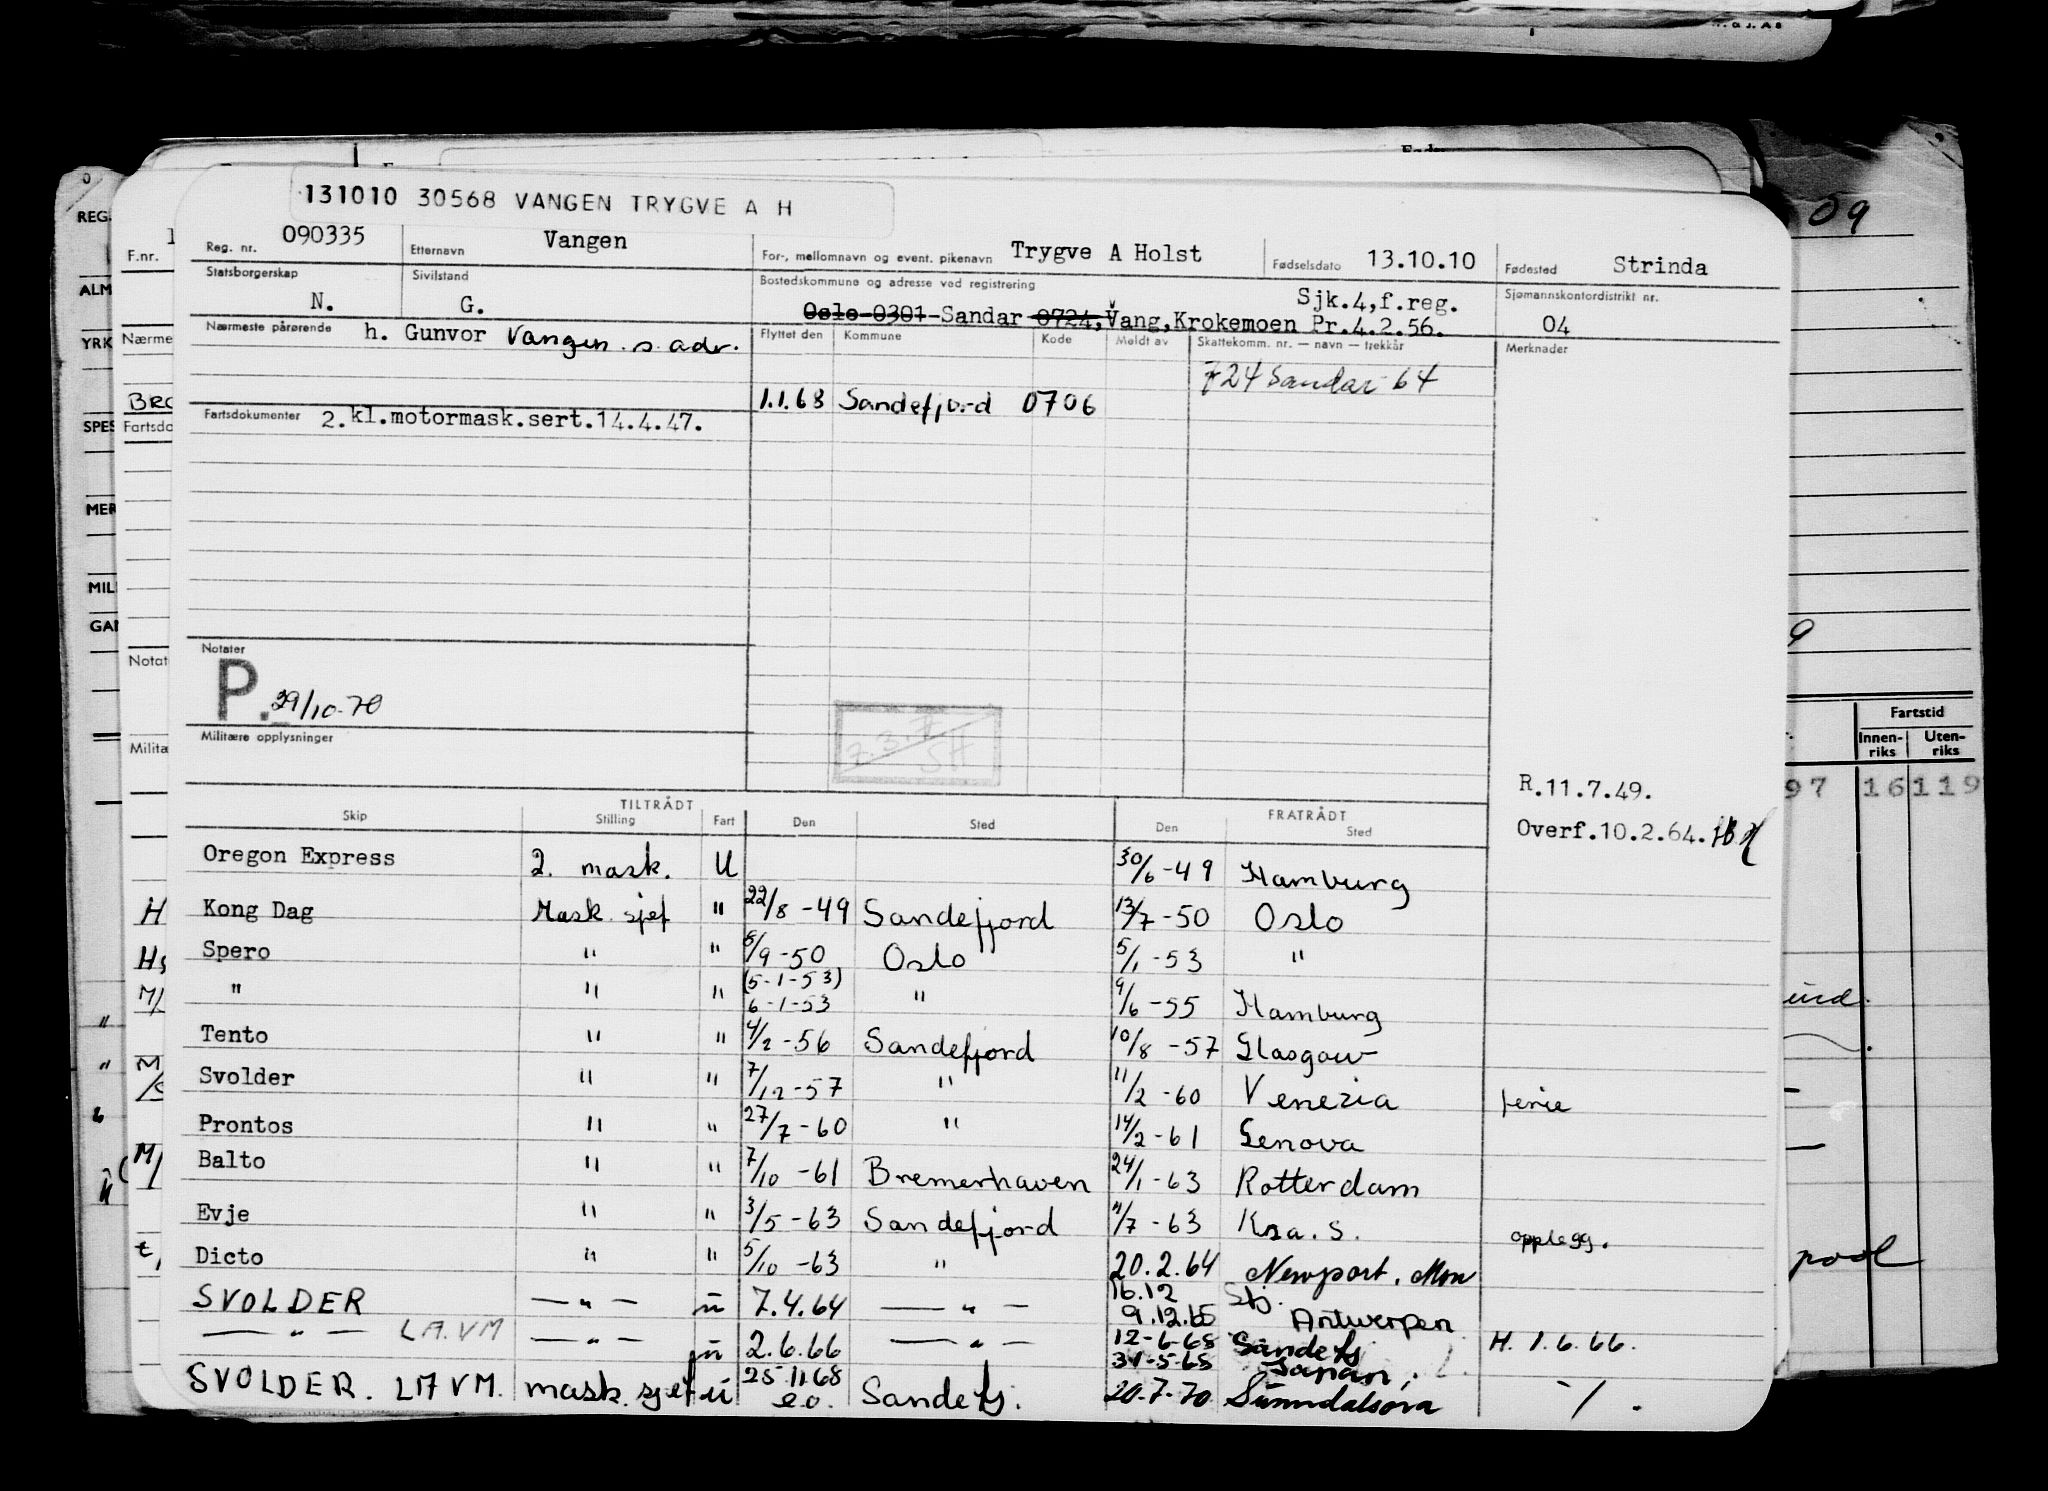 131010 30568 VANGEN TRYGVE A H
Reg. nr. 090335 Etternavn Vangen For-, mellomnavn og event. pikenavn Trygve A Holst Fødselsdato 13.10.10 Fødested Strinda
Statsborgerskap N. Sivilstand G. Bostedskommune og adresse ved registrering Sjk.4,f.reg. Sjømannskontordistrikt nr. 04
Oslo 0301 Sandar 0724, Vang, Krokemoen Pr.4.2.56.
Nærmeste pårørende h. Gunvor Vangen s. adr. Flyttet den Kommune Kode Meldt av Skattekomm. nr. — navn — trekkår Merknader
724 Sandar 64
1.1.68 Sandefjord 0706
Fartsdokumenter 2. kl.motormask.sert.14.4.47.
Notater
P. 29/10-70
Militære opplysninger
R.11.7.49.
Overf.10.2.64.
TILTRÅDT FRATRÅDT
Skip Stilling Fart Den Sted Den Sted
Oregon Express 2. mask. U 30/6-49 Hamburg
Kong Dag Mask sjef " 22/8-49 Sandefjord 13/7-50 Oslo
Spero " " 8/9-50 Oslo 5/1-53 "
" " " (5-1-53) 6-1-53 " 9/6-55 Hamburg
Tento " " 4/2-56 Sandefjord 10/8-57 Glasgow
Svolder " " 7/12-57 " 11/2-60 Venezia ferie
Prontos " " 27/7-60 " 14/2-61 Genova
Balto " " 7/10-61 Bremerhaven 24/1-63 Rotterdam
Evje " " 3/5-63 Sandefjord 11/7-63 Kra. S. opplegg.
Dicto " " 5/10-63 " 20.2.64 Newport, Mon
SVOLDER — " — ü 7.4.64 — " — 16.12 9.12.65 Antwerpen
— " — LAVM — " — ü 2.6.66 — " — 12-6-68 Sandefj H. 1.6.66.
31-5-68 Japan,
SVOLDER. LAVM. mask. sjef ü 25.11.68 e.o. Sandefj. 20.7.70 Sunndalsøra
F.nr.
Nærme
Fartsdo
Notat
Militæ
REG.
ALM
YRK
SPES
MER
MIL
GAN
09
Fartstid
Innen-riks Uten-riks
97 16 119
pool